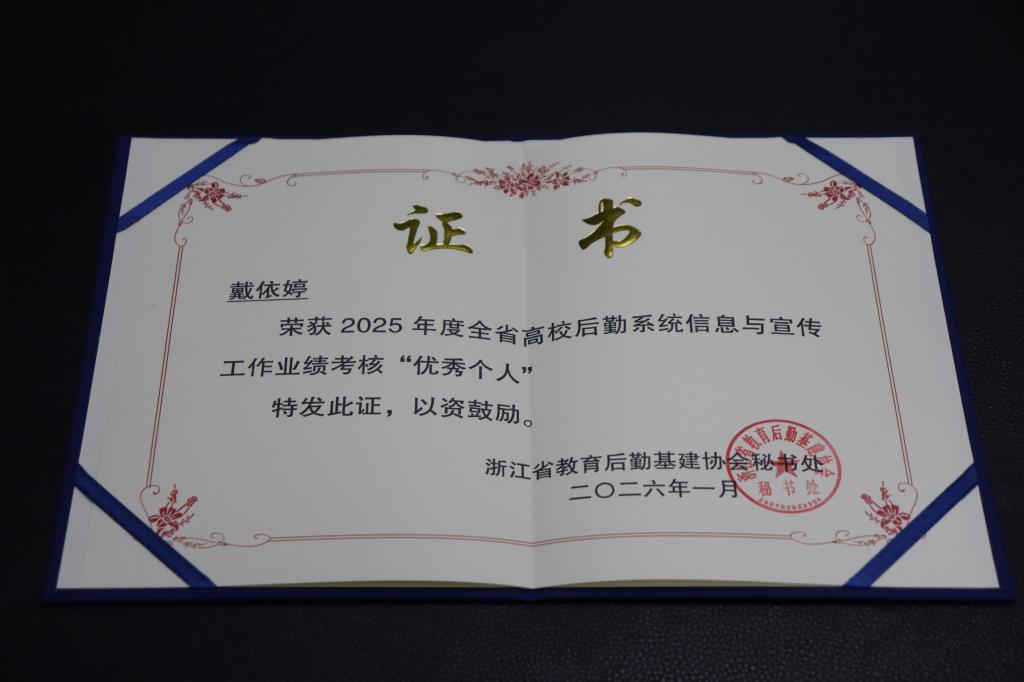 证 书
戴依婷
荣获 2025 年度全省高校后勤系统信息与宣传
工作业绩考核“优秀个人”
特发此证，以资鼓励。
浙江省教育后勤基建协会秘书处
二〇二六年一月
浙江省教育后勤基建协会
秘书处